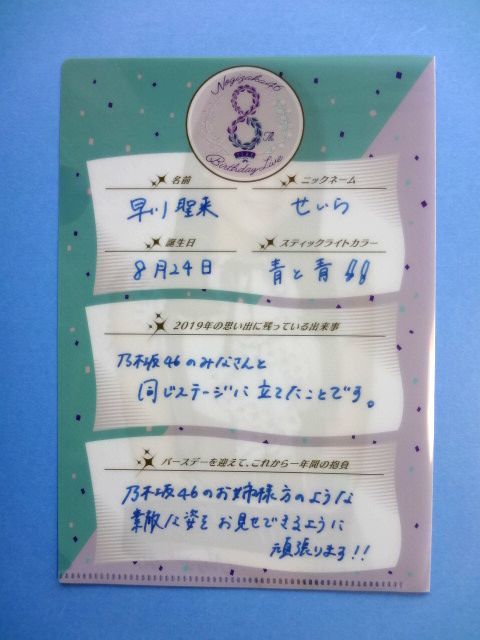 Nogizaka46
8Th
YEAR
Birthday Live
名前
ニックネーム
早川聖来
せいら
誕生日
スティックライトカラー
8月24日
青と青!!
2019年の思い出に残っている出来事
乃木坂46のみなさんと
同じステージに立てたことです。
バースデーを迎えて、これから一年間の抱負
乃木坂46のお姉様方のような
素敵な姿をお見せできるように
頑張ります!!